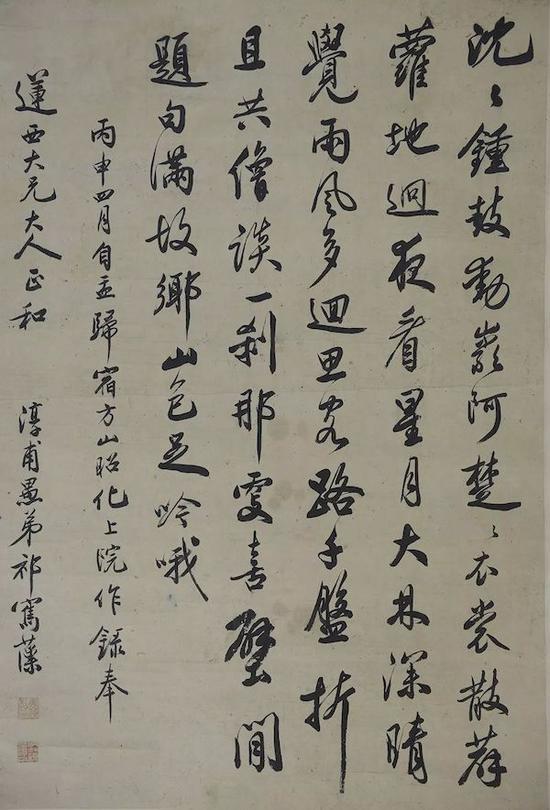 沈〻鍾鼓動巖阿楚〻衣裳散薜
蘿地迥夜看星月大林深晴
覺雨風多迴思客路千盤折
且共僧談一剎那更喜壁間
題句滿故鄉山色足吟哦
丙申四月自盂歸宿方山昭化上院作錄奉
蓮西大兄大人正和
淳甫愚弟祁寯藻